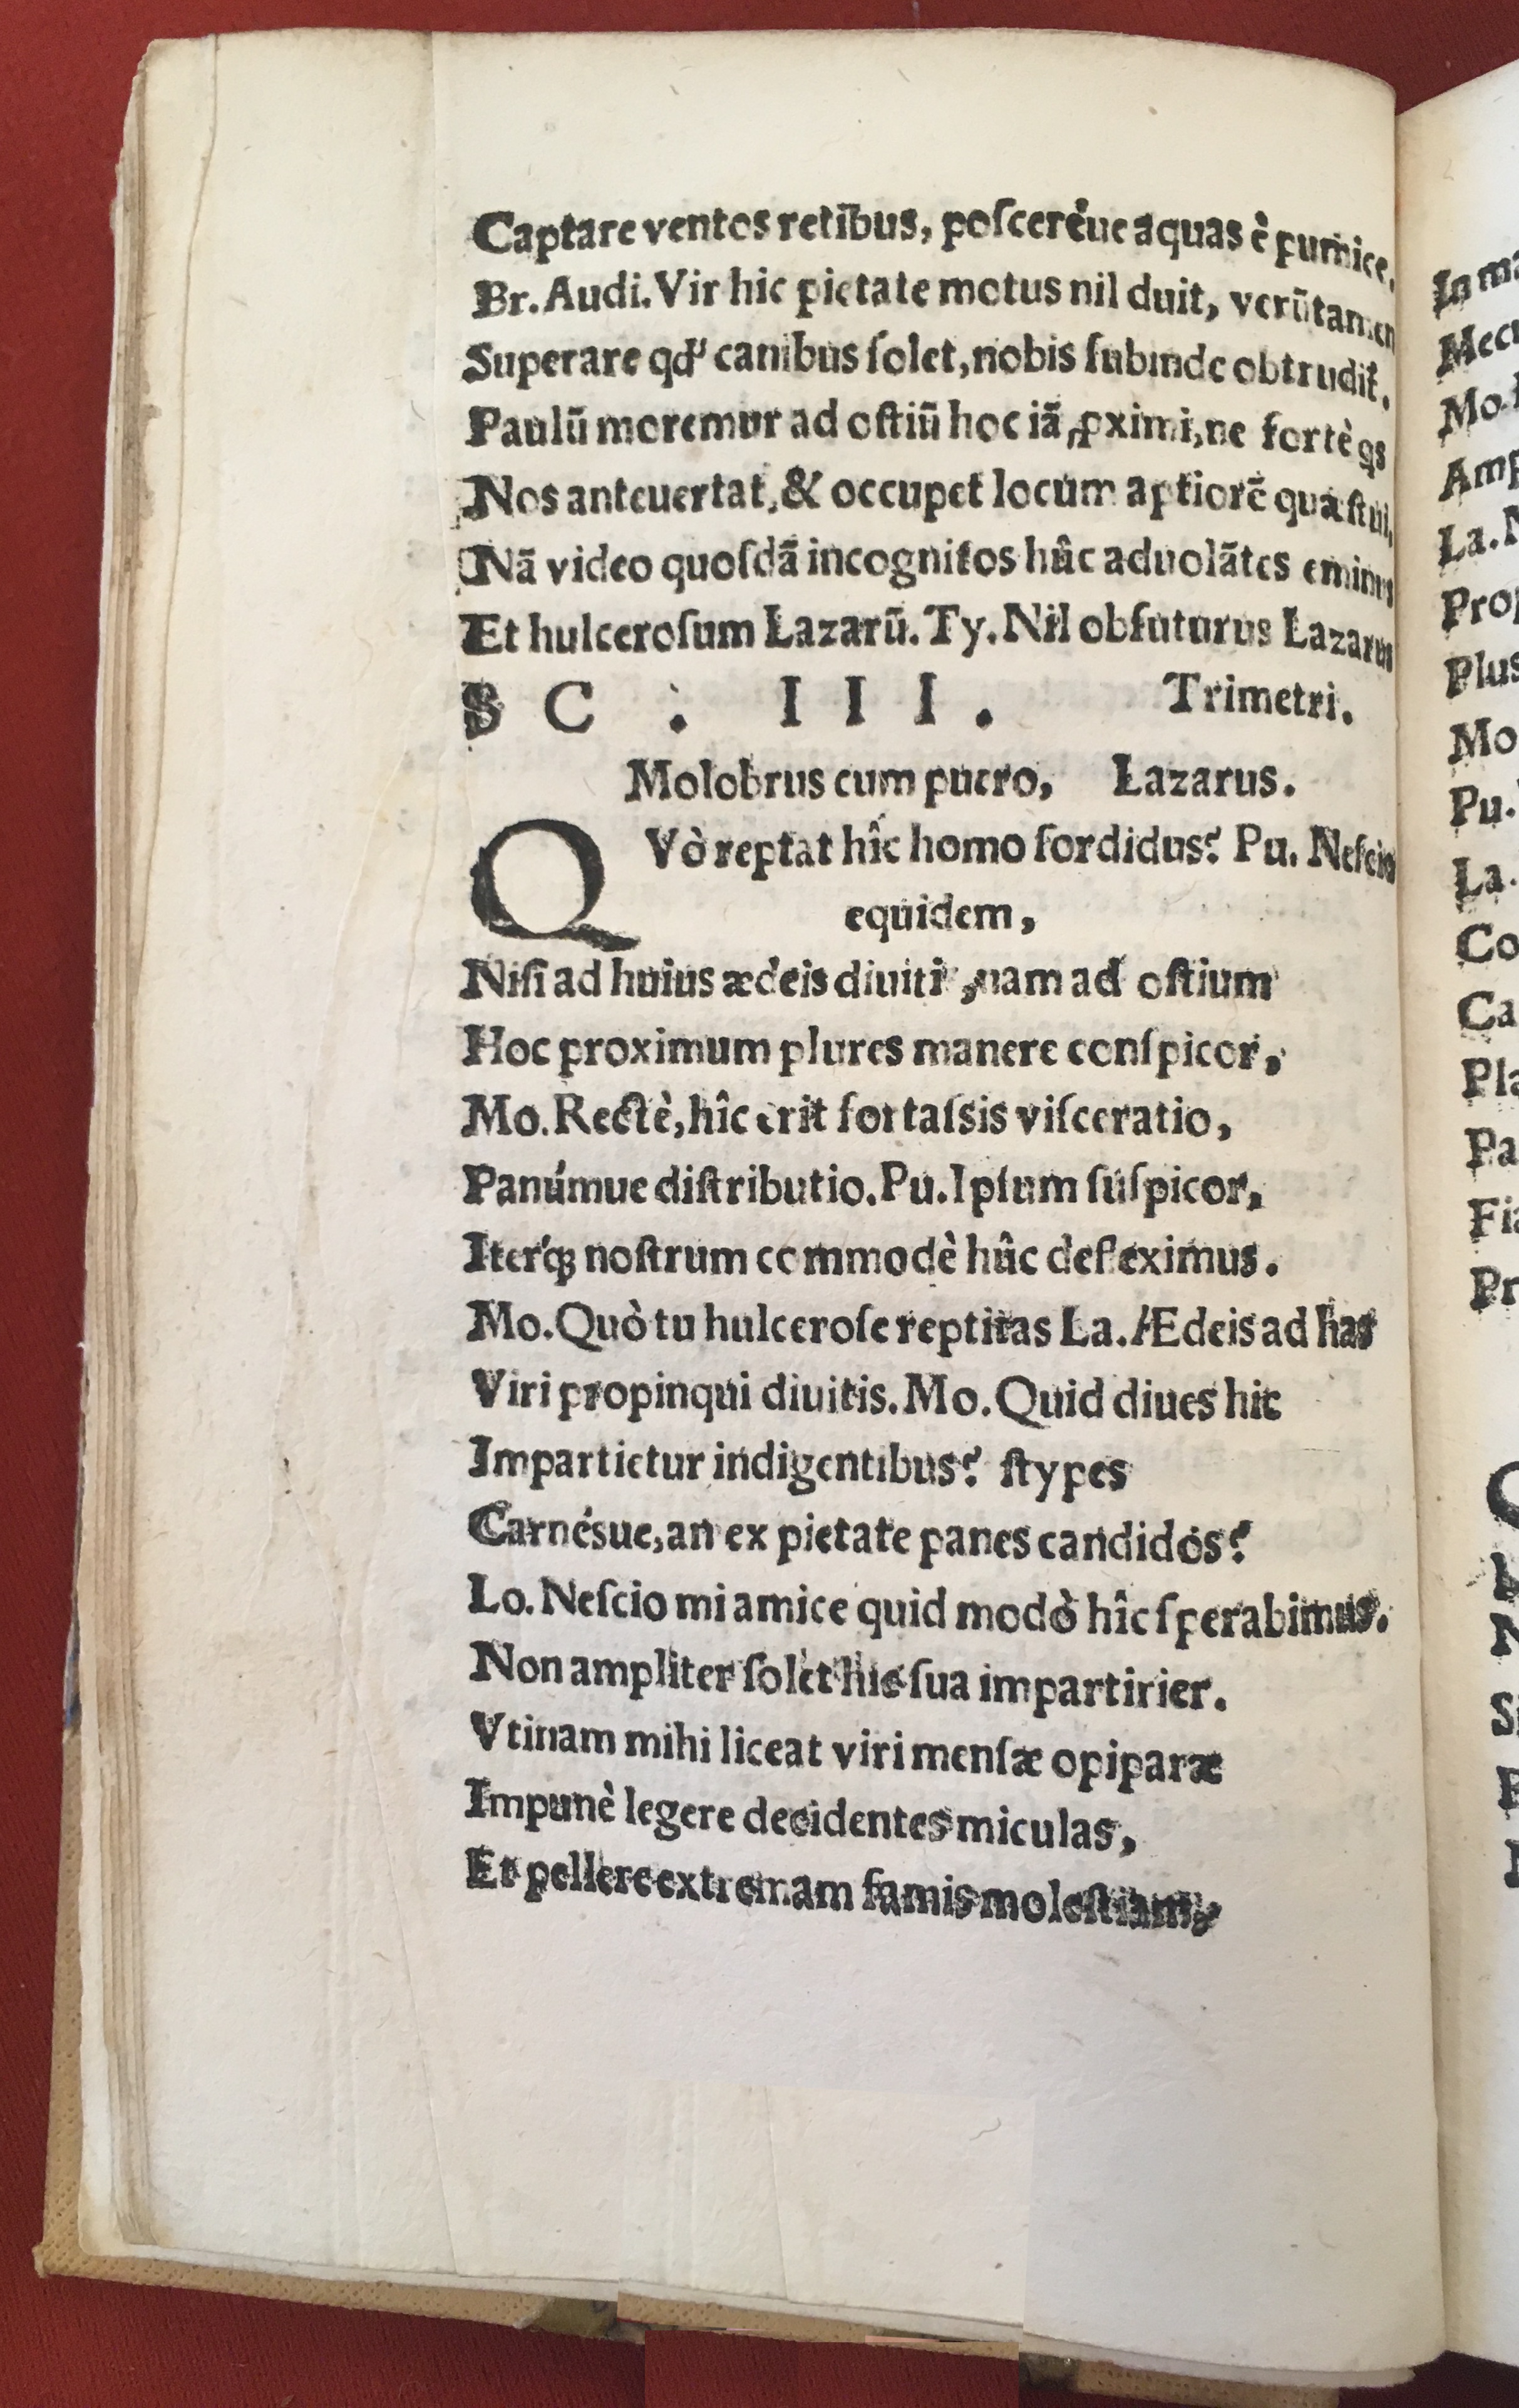 Captare ventos retibus, poſceréue aquas è pumice,
Br. Audi. Vir hic pietate motus nil duit, verūtamen
Superare qd' canibus ſolet, nobis ſubinde obtrudit.
Paulū moremur ad oſtiū hoc iā ꝓximi, ne fortè qs
Nos anteuertat, & occupet locum aptiorē quæſtui,
Nā video quoſdā incognitos hûc aduolātes eminus
Et hulceroſum Lazarū. Ty. Nil obfuturus Lazarus
SC. III. Trimetri.
Molobrus cum puero, Lazarus.
QVò reptat hîc homo ſordidus? Pu. Neſcio
equidem,
Niſi ad huius ædeis diuiti, nam ad oſtium
Hoc proximum plures manere conſpicor,
Mo. Rectè, hîc erit fortaſsis viſceratio,
Panúmue diſtributio. Pu. Ipſum ſuſpicor,
Iter'q; noſtrum commodè hûc defleximus.
Mo. Quò tu hulceroſe reptitas La. Ædeis ad has
Viri propinqui diuitis. Mo. Quid diues hic
Impartietur indigentibus? ſtypes
Carnésue, an ex pietate panes candidos?
Lo. Neſcio mi amice quid modò hîc ſperabimus.
Non ampliter ſolet hic ſua impartirier.
Vtinam mihi liceat viri menſæ opiparæ
Impunè legere decidentes miculas,
Et pellere extremam famis moleſtiam,
In
Mo.
La.
Mo
Pu.
La.
Co
Ca
Pla
Pa
Fia
Pr